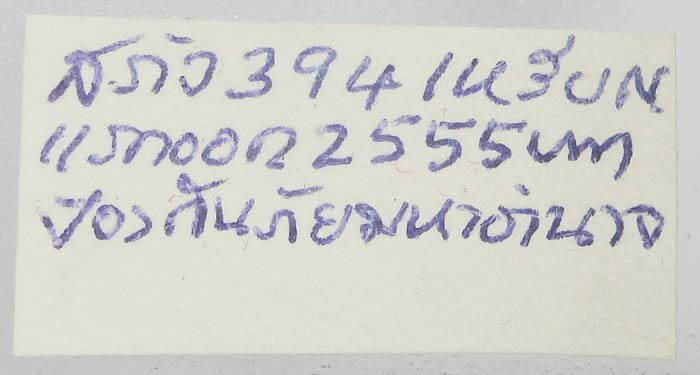 394 เหรียญ
แรกออก2555บาท
ป้องกันภัยมหาอำนาจ